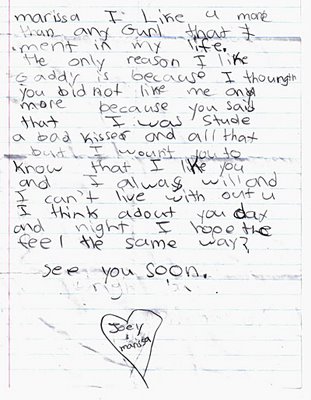 marissa I Like u more
than any Gurl that I
ment in my life.
the only reason I like
addy is because I thoungth
you bid not like me any
more because you said
that I was Stude
a bad kisser and all that
but I wount you to
know that I like you
and I alwas will and
I can't live with out u
I think adout you day
and night. I hope the
feel the same way?
see you soon.
right
Joey
+
marissa